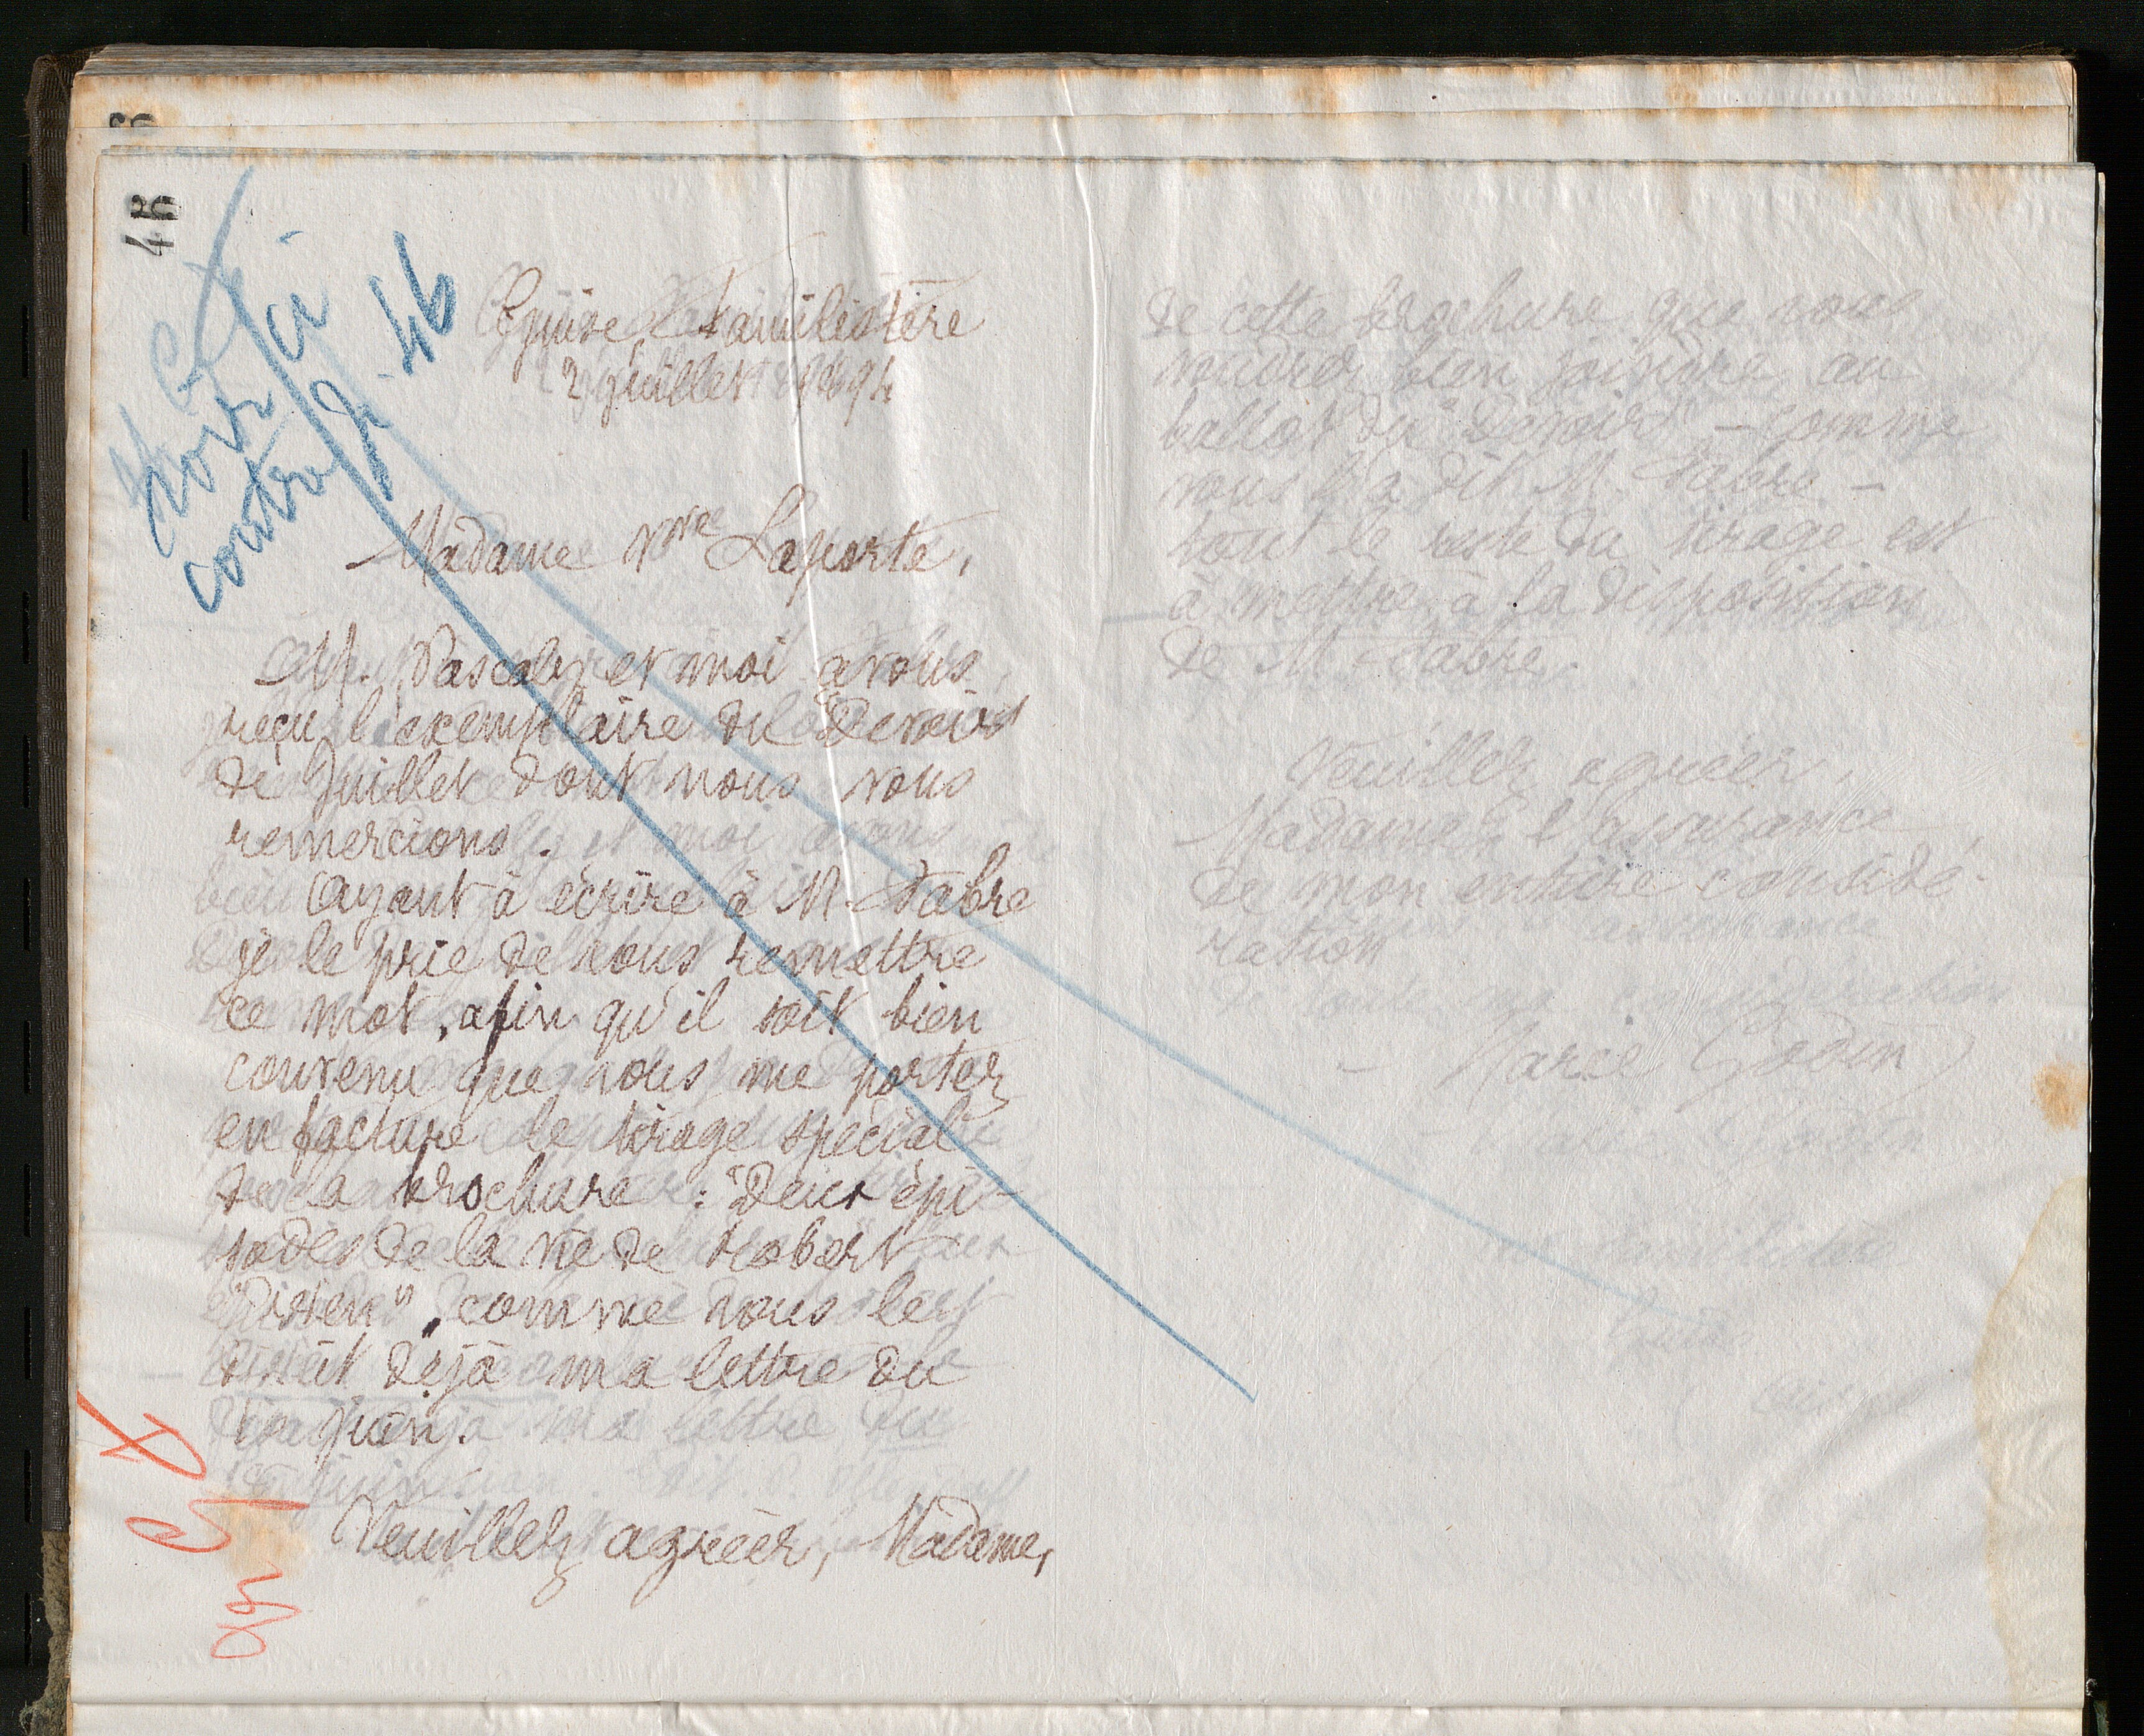 45
Voir ci
contre p. 46
Guise Familistère
2 juillet 1894
Madame Vve Laporte,
M. Pascaly et moi avons
reçu l'exemplaire du "Devoir"
de Juillet dont nous vous
remercions.
Ayant à écrire à M. Fabre
je le prie de vous remettre
ce mot, afin qu'il soit bien
convenu que vous me portez
en facture le tirage spécial
de la brochure : "Deux épi-
sodes de la vie de Robert
Owen", comme vous le
disait déjà ma lettre du
juin.
Veuillez agréer, Madame,
de cette brochure que vous
voudrez bien joindre au
ballot du "Devoir" - comme
vous l'a dit M. Fabre -
tout le reste du tirage est
à mettre à la disposition
de M. Fabre.
Veuillez agréer,
Madame, l'assurance
de mon entière considé-
ration
Marie Godin